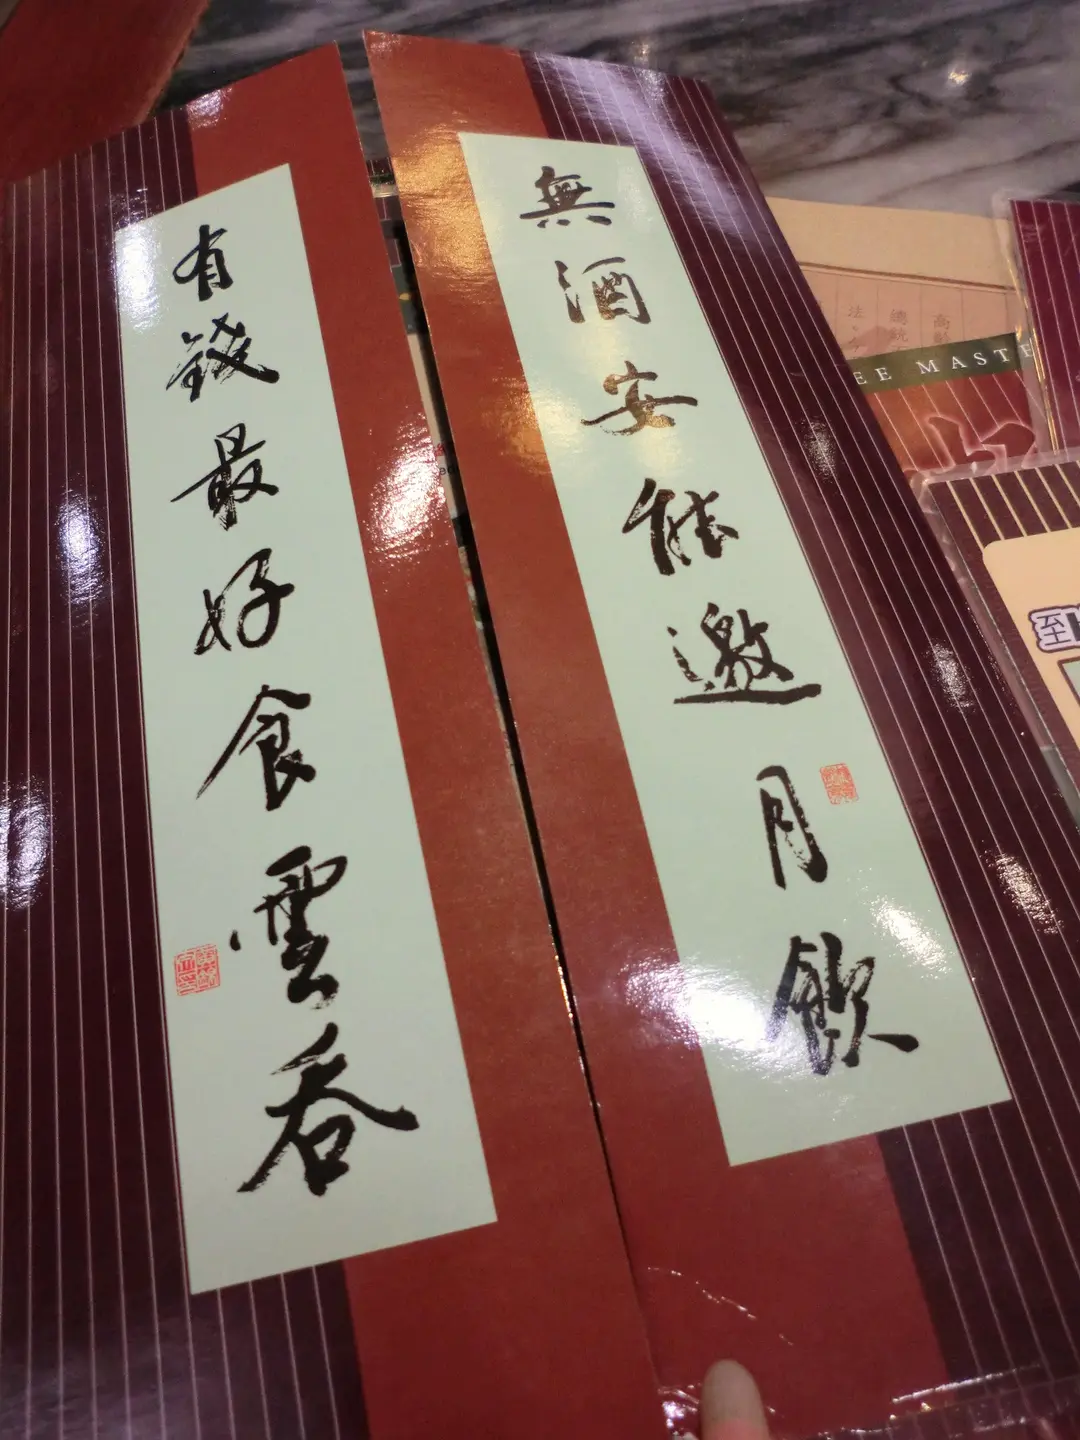 無酒安能邀月飲
有錢最好食雲吞
高
總統
法令
EE MASTE
至